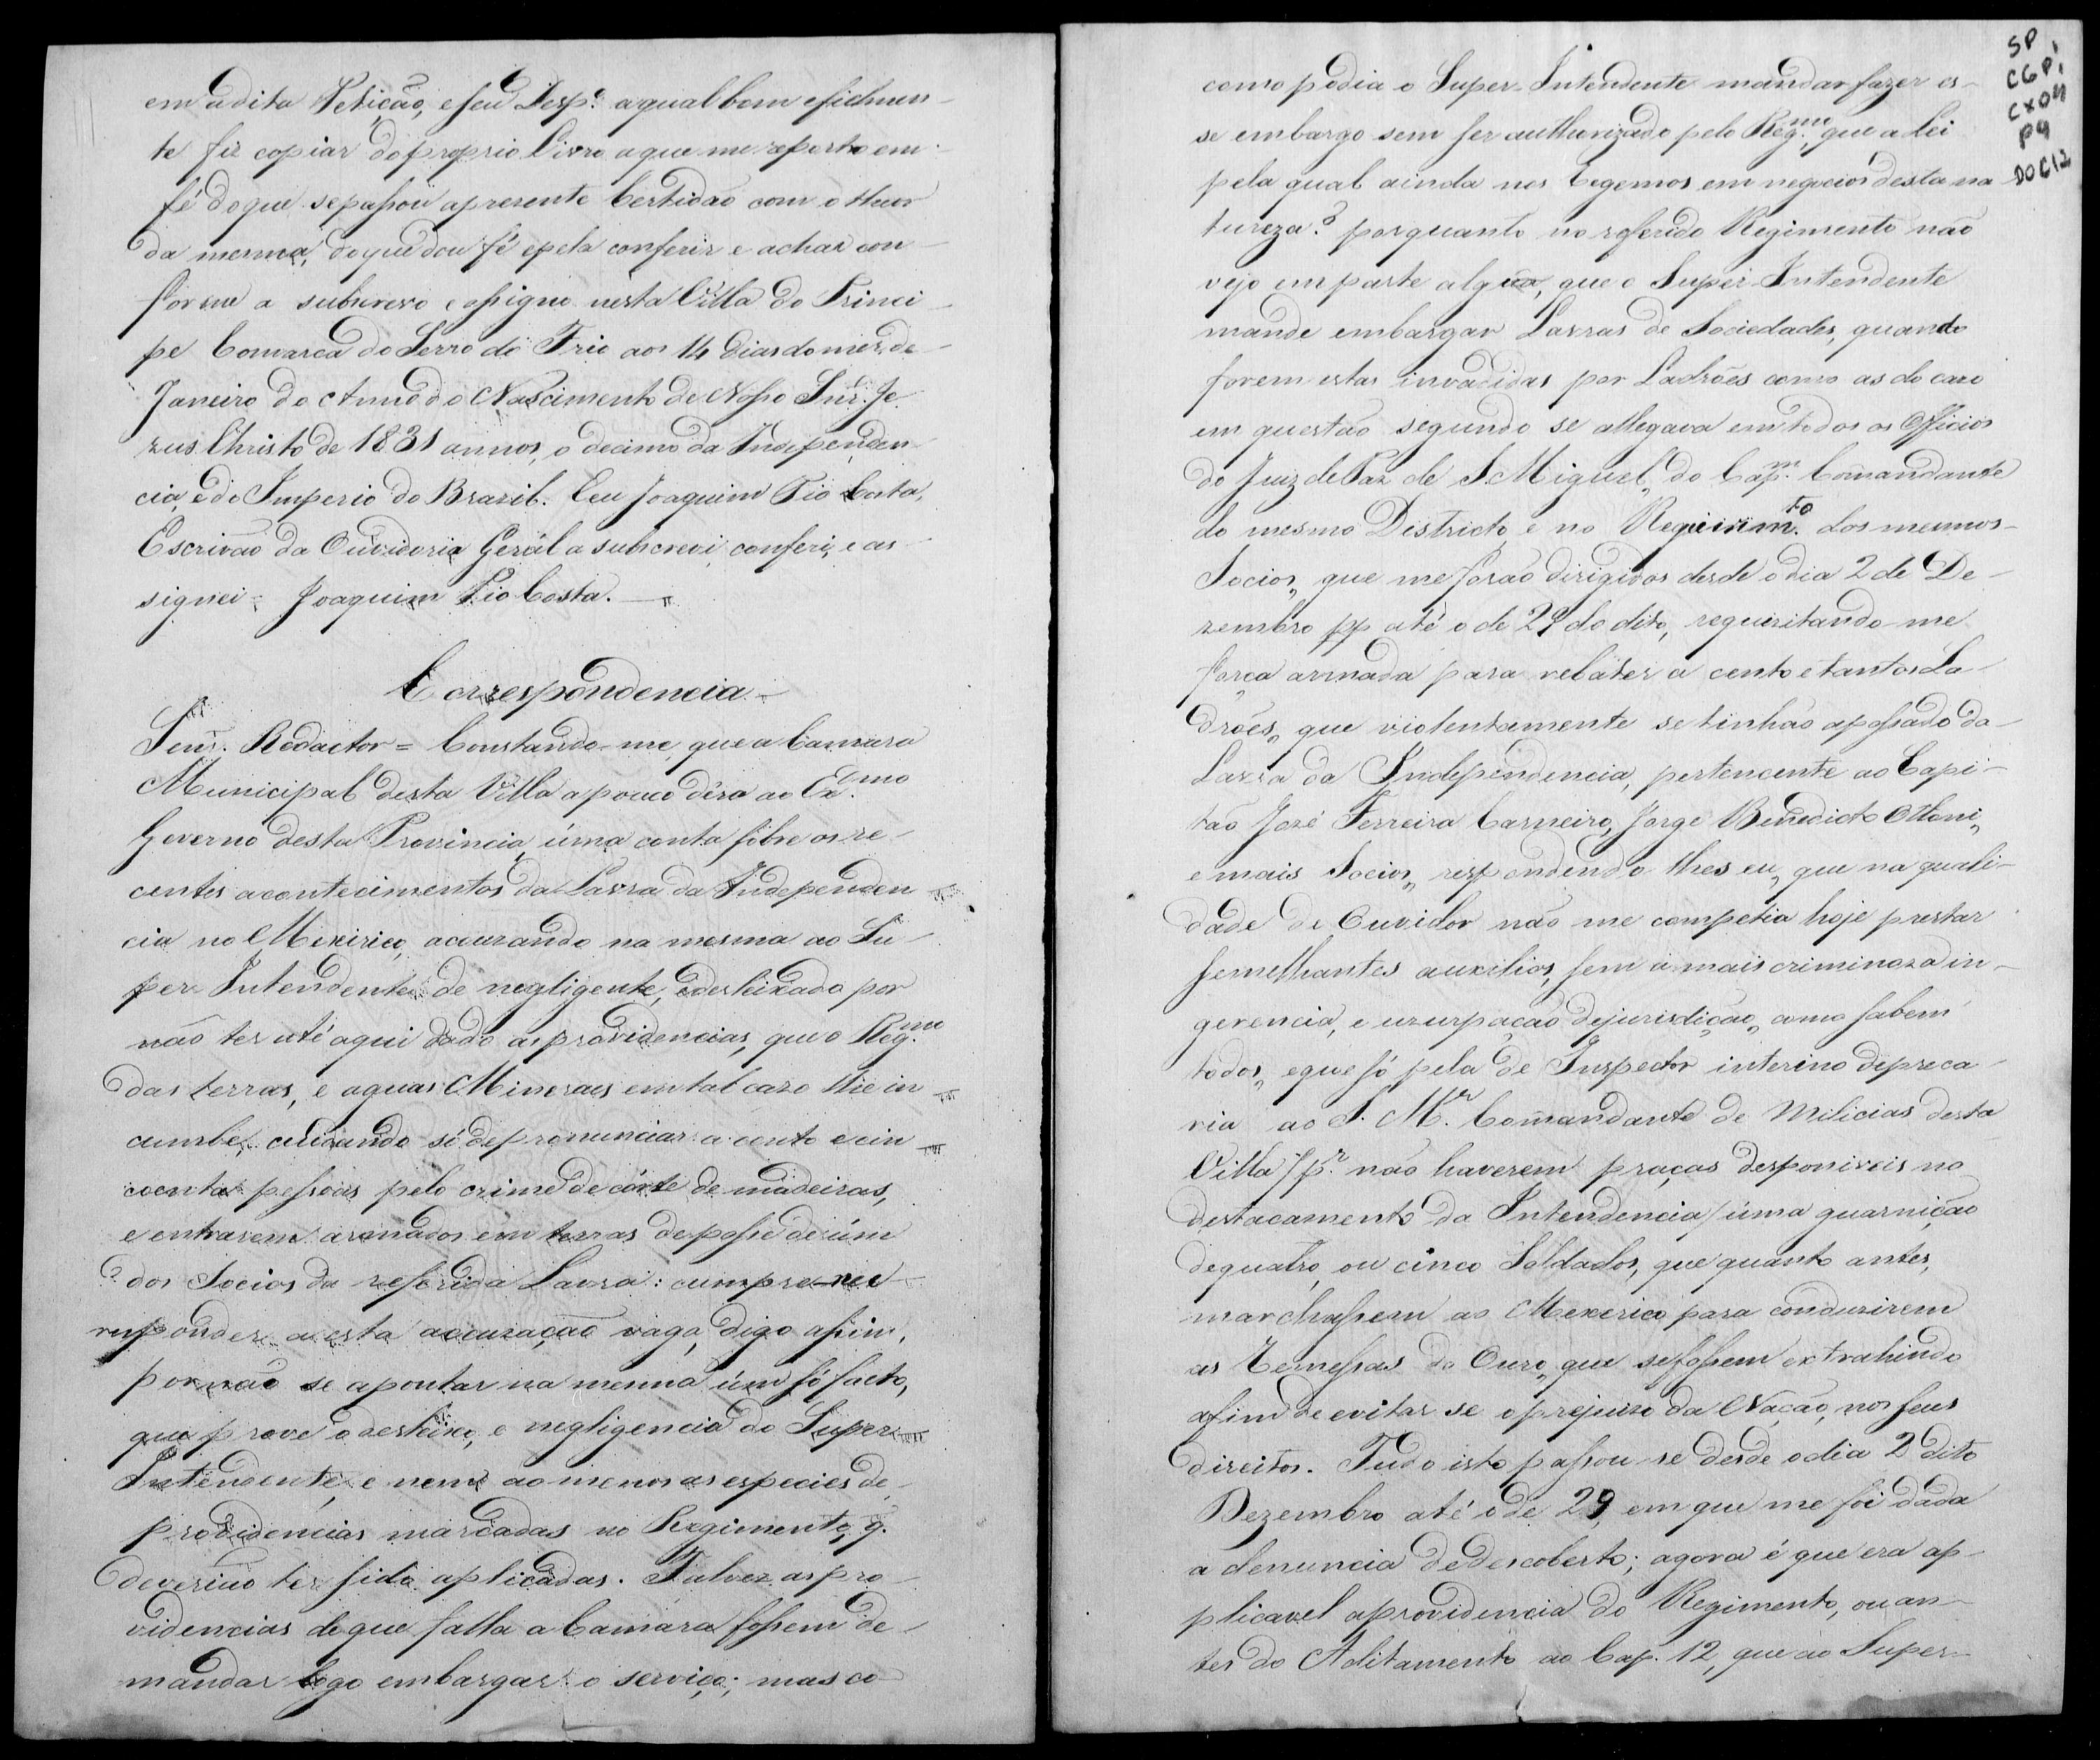 em a dita Petição, e seu Desp.º a qual bem e fielmen-
te fiz copiar do proprio Livro a que me reporto em
fé do que se passou a presente Certidão com o theor
da mesma, do que dou fé e pela conferir e achar con-
forme a subscrevo e assigno nesta Villa do Princi-
pe Comarca do Serro do Frio aos 14 dias do mez de
Janeiro do Anno do Nascimento de Nosso Snr. Je-
zus Christo de 1831 annos, o decimo da Independen-
cia, e do Imperio do Brazil. Eu Joaquim Pio Costa,
Escrivão da Ouvidoria Geral a subscrevi, conferi, e as-
signei = Joaquim Pio Costa.
Correspondencia
Senr. Redactor = Constando-me, que a Camara
Municipal desta Villa a pouco déra ao Ex.mo
Governo desta Provincia, úma conta sobre os re-
centes acontecimentos da Lavra da Independen-
cia no Mexirico, accuzando na mesma ao Su-
per Intendente de negligente, e desleixado por
não ter até aqui dado as providencias, que o Reg.mo
das terras, e aguas Mineraes em tal cazo lhe in-
cumbe, cuidando só de pronunciar a cento e cin-
coenta pessoas pelo crime de córte de madeiras,
e entrarem armados em terras de posse de úm
dos Socios da referida Lavra: cumpre-me
responder a esta accuzação vaga, digo assim,
por não se apontar na mesma úm só facto,
que prove o desleixo, e negligencia do Super
Intendente, e nem ao menos as especies de
providencias marcadas no Regimento, q.
deverião ter sido aplicadas. Talvez as pro-
videncias de que falla a Camara fossem de
mandar logo embargar o serviço; mas co-
SP
CGP1
CX04
P9
DOC12
como podia o Super-Intendente mandar fazer es-
se embargo sem ser authorizado pelo Reg.mo, que a lei
pela qual ainda nos regemos em negocios desta na-
tureza? porquanto no referido Regimento não
vejo em parte algũa, que o Super-Intendente
mande embargar Lavras de Sociedades, quando
forem estas invadidas por Ladrões como as do cazo
em questão segundo se allegava em todos os Officios
do Juiz de Paz de S. Miguel, do Cap.m Comandante
do mesmo Districto, e no Requirim.to dos mesmos
Socios, que me forão dirigidos desde o dia 2 de De-
zembro pp até o de 29 do dito, requizitando-me
força armada para rebater a cento e tantos La-
drões, que violentamente se tinhão apossado da
Lavra da Independencia, pertencente ao Capi-
tão Jozé Ferreira Carneiro, Jorge Benedicto Ottoni,
e mais Socios, respondendo lhes eu, que na quali-
dade de Ouvidor não me competia hoje prestar
semelhantes auxilios, sem a mais criminoza in-
gerencia, e uzurpação de jurisdição, como sabem
todos, e que só pela de Inspector interino depreca-
ria ao S. M.or Comandante de Milicias desta
Villa /p.r não haverem praças desponiveis no
destacamento da Intendencia/ úma guarnição
de quatro, ou cinco Soldados, que quanto antes,
marchassem ao Mexerico para conduzirem
as Remessas do Ouro, que se fossem extrahindo
afim de evitar se o prejuizo da Nação, nos seus
direitos. Tudo isto passou-se desde o dia 2 dito
Dezembro até o de 29, em que me foi dada
a denuncia de descoberto; agora é que era ap-
plicavel a providencia do Regimento, ou an-
tes do Aditamento ao Cap. 12, que ao Super-